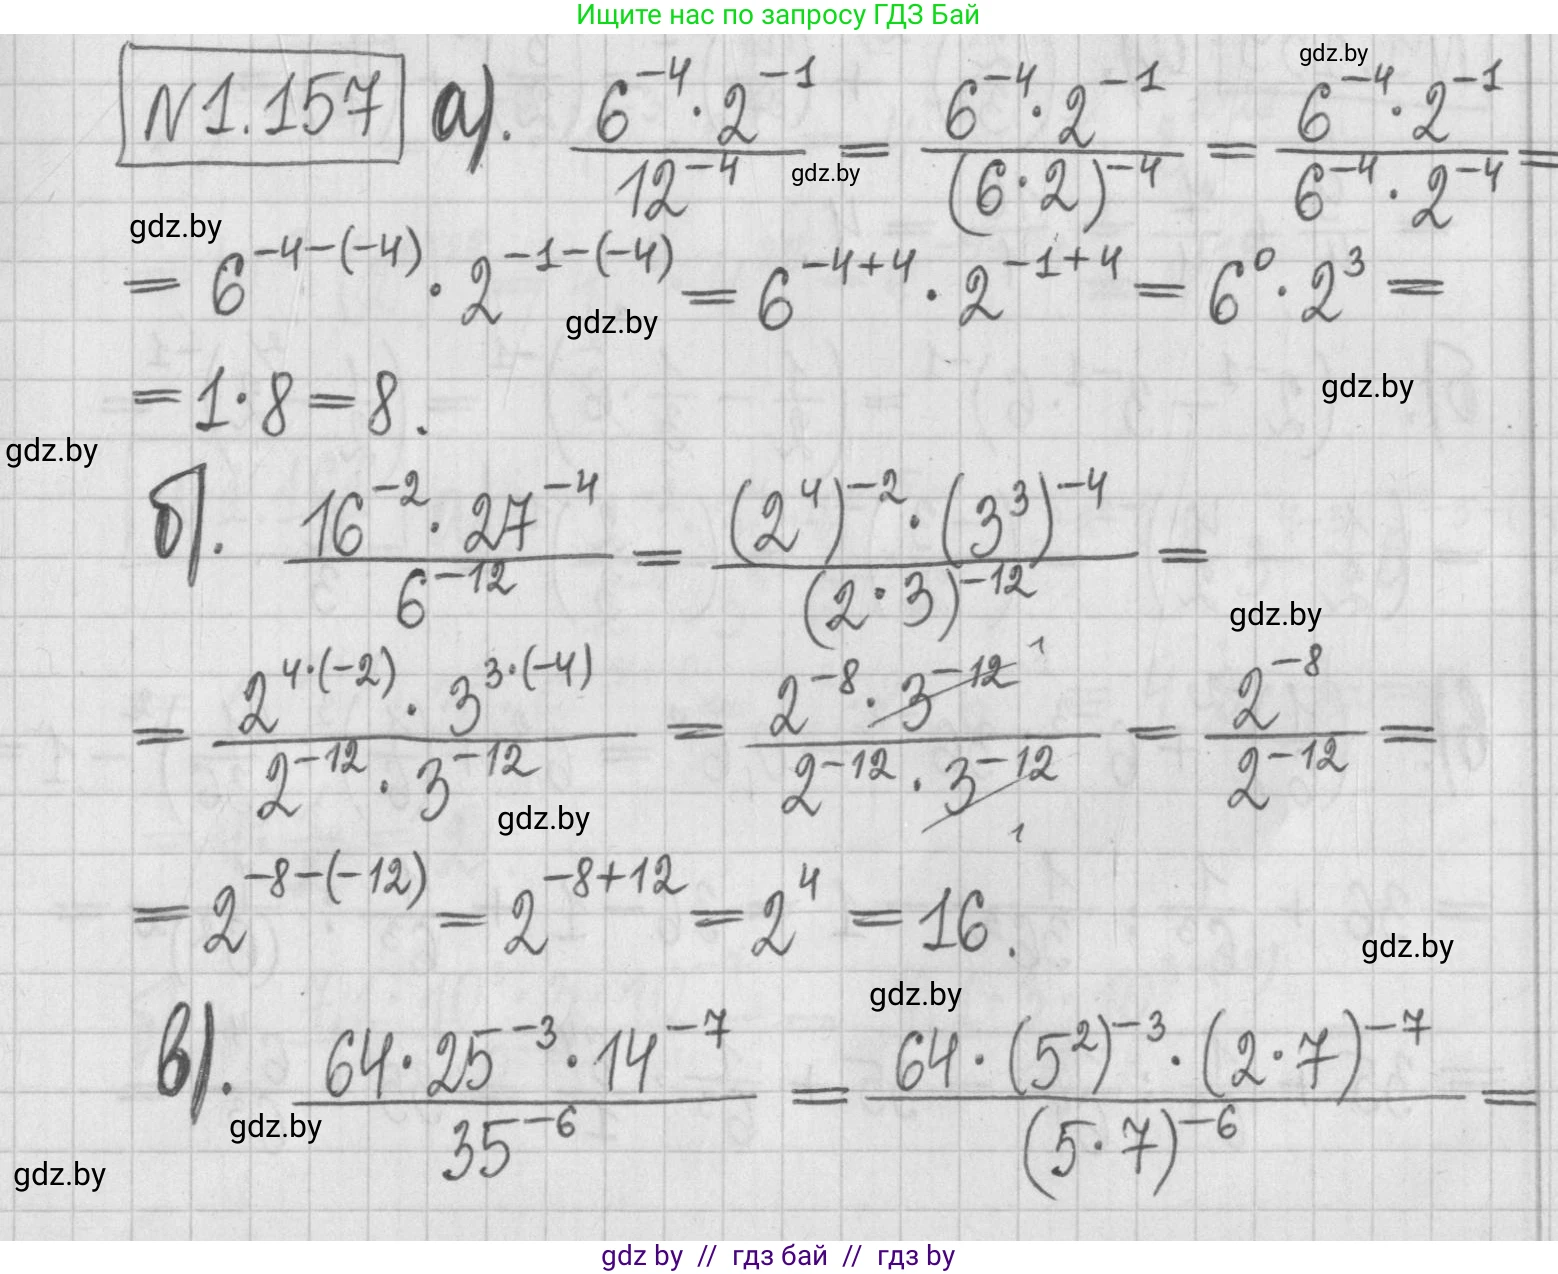 Ищите нас по запросу ГДЗ Бай
gdz.by
N1.157 а). \frac{6^{-4} \cdot 2^{-1}}{12^{-4}} = \frac{6^{-4} \cdot 2^{-1}}{(6 \cdot 2)^{-4}} = \frac{6^{-4} \cdot 2^{-1}}{6^{-4} \cdot 2^{-4}} =
gdz.by
gdz.by
= 6^{-4-(-4)} \cdot 2^{-1-(-4)} = 6^{-4+4} \cdot 2^{-1+4} = 6^0 \cdot 2^3 =
gdz.by
gdz.by
= 1 \cdot 8 = 8.
gdz.by
б). \frac{16^{-2} \cdot 27^{-4}}{6^{-12}} = \frac{(2^4)^{-2} \cdot (3^3)^{-4}}{(2 \cdot 3)^{-12}} =
gdz.by
= \frac{2^{4 \cdot (-2)} \cdot 3^{3 \cdot (-4)}}{2^{-12} \cdot 3^{-12}} = \frac{2^{-8} \cdot 3^{-12} 1}{2^{-12} \cdot 3^{-12} 1} = \frac{2^{-8}}{2^{-12}} =
gdz.by
= 2^{-8-(-12)} = 2^{-8+12} = 2^4 = 16.
gdz.by
gdz.by
в). \frac{64 \cdot 25^{-3} \cdot 14^{-7}}{35^{-6}} = \frac{64 \cdot (5^2)^{-3} \cdot (2 \cdot 7)^{-7}}{(5 \cdot 7)^{-6}} =
gdz.by
gdz.by
gdz by // гдз бай // гдз by